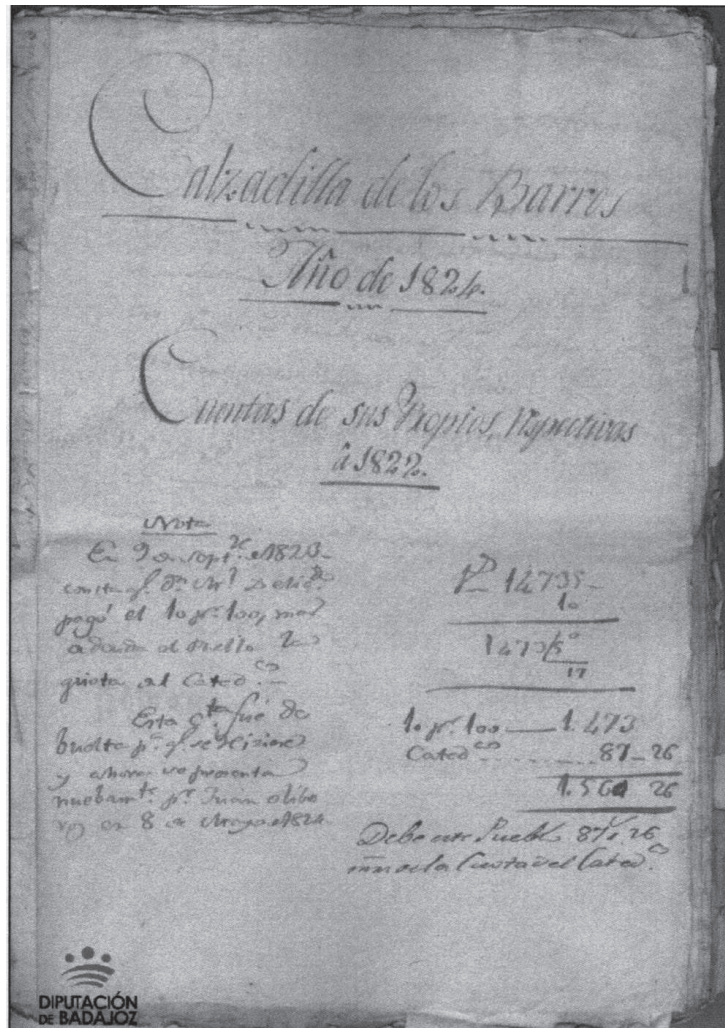 Calzadilla de los Barros
Año de 1824.
Cuentas de sus Propios, respectivas
â 1822.
Nota
En 9 de Sept.re de 1823
consta q.e Dn
pagó el 10 pr. 100, mas
adeuda el Pueblo
al Cated.co
Esta cta fué de
buelta pa. q.e se hiciere
y ahora se presenta
nuebamte. pr. Juan olibe
ros en 8 de Mayo de 1824
14735
10
1473/5 0
17
10 pr. 100 1.473
Cated.co 87 26
1.560 26
Debe este Pueblo 87 r 26
mrs de la Cuota del Cated.co
DIPUTACIÓN
DE BADAJOZ